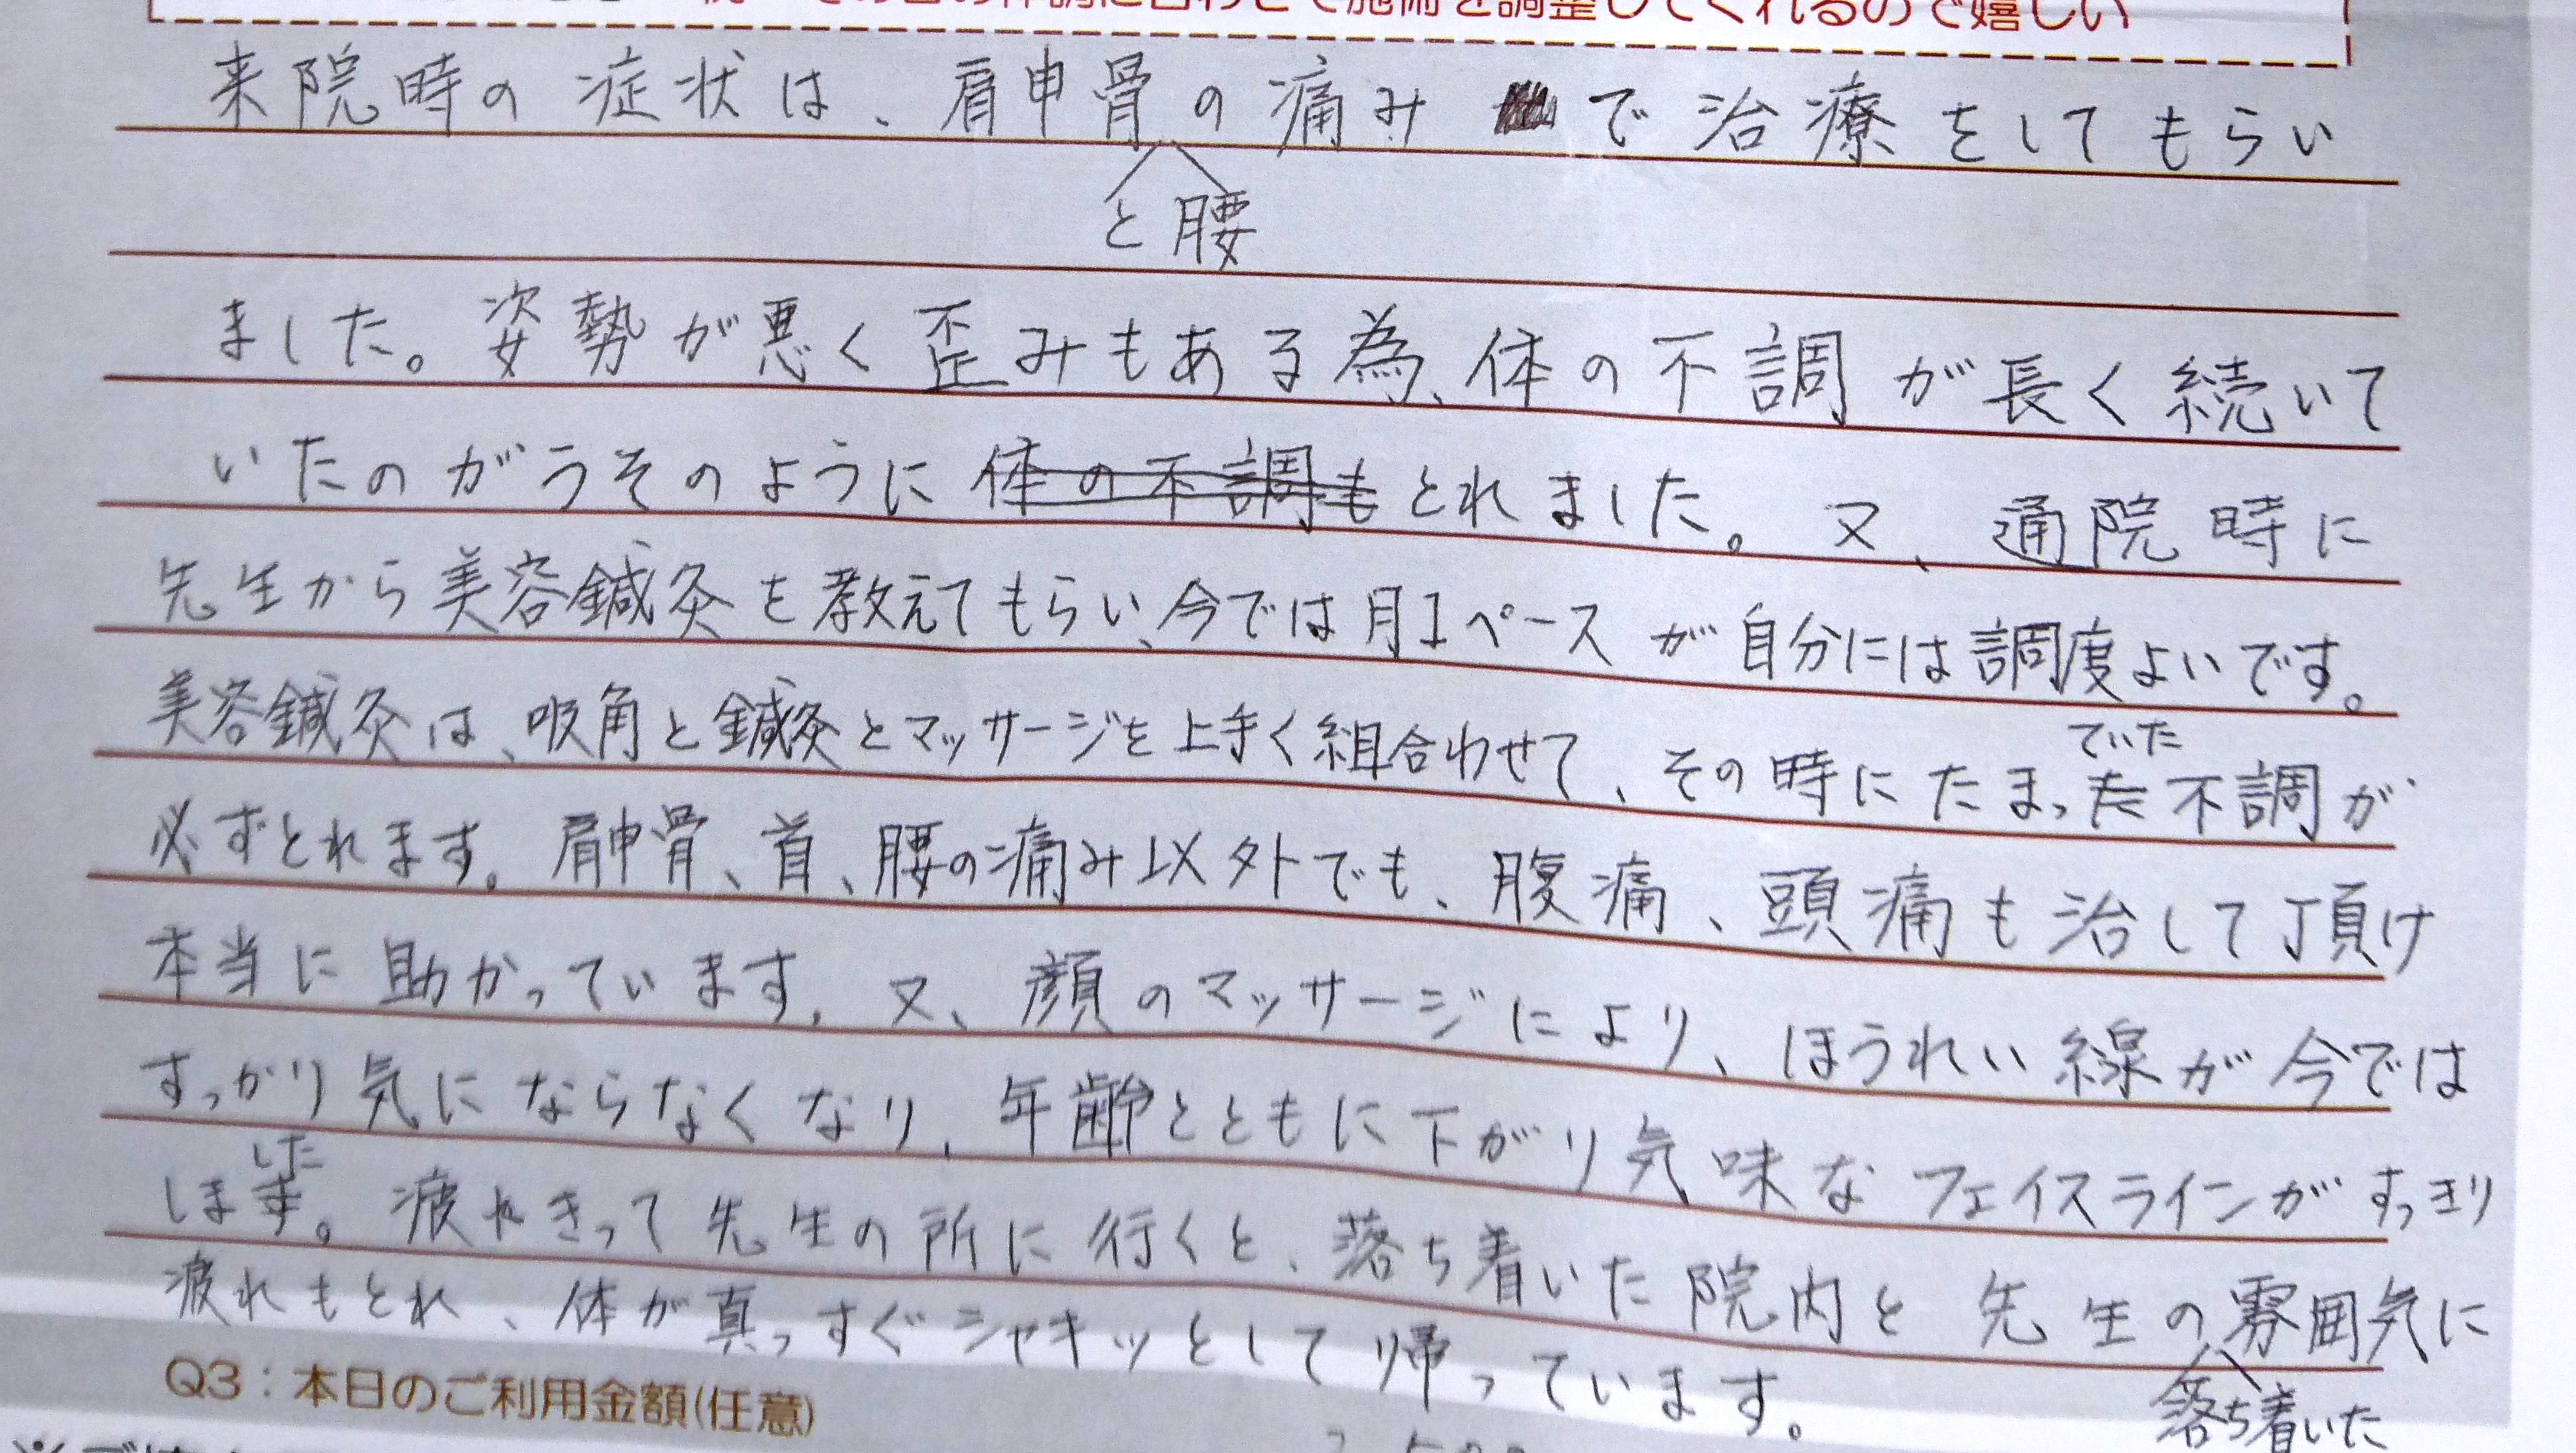 その日の体調に合わせて施術を調整してくれるので嬉しい
来院時の症状は、肩申骨の痛みで治療をしてもらい
と腰
ました。姿勢が悪く歪みもある為、体の不調が長く続いて
いたのがうそのように体の不調もとれました。又、通院時に
先生から美容鍼灸を教えてもらい、今では月1ペースが自分には調度よいです。
ていた
美容鍼灸は、吸角と鍼灸とマッサージを上手く組合わせて、その時にたまった不調が
必ずとれます。肩申骨、首、腰の痛み以外でも、腹痛、頭痛も治して頂け
本当に助かっています。又、顔のマッサージにより、ほうれい線が今では
すっかり気にならなくなり、年齢とともに下がり気味なフェイスラインがすっきり
した
します。疲れきって先生の所に行くと、落ち着いた院内と先生の雰囲気に
落ち着いた
疲れもとれ、体が真っすぐシャキッとして帰っています。
Q3：本日のご利用金額(任意)